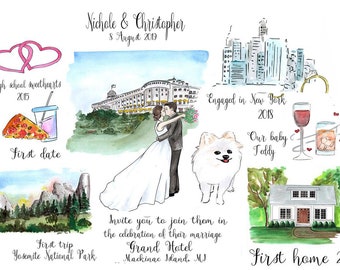 Nichole & Christopher
3 August 2019
high school sweethearts
2015
First date
Engaged in New York
2018
Our baby
Teddy
First trip
Yosemite National Park
Invite you to join them in
the celebration of their marriage
Grand Hotel
Mackinac Island, MI
First home 2